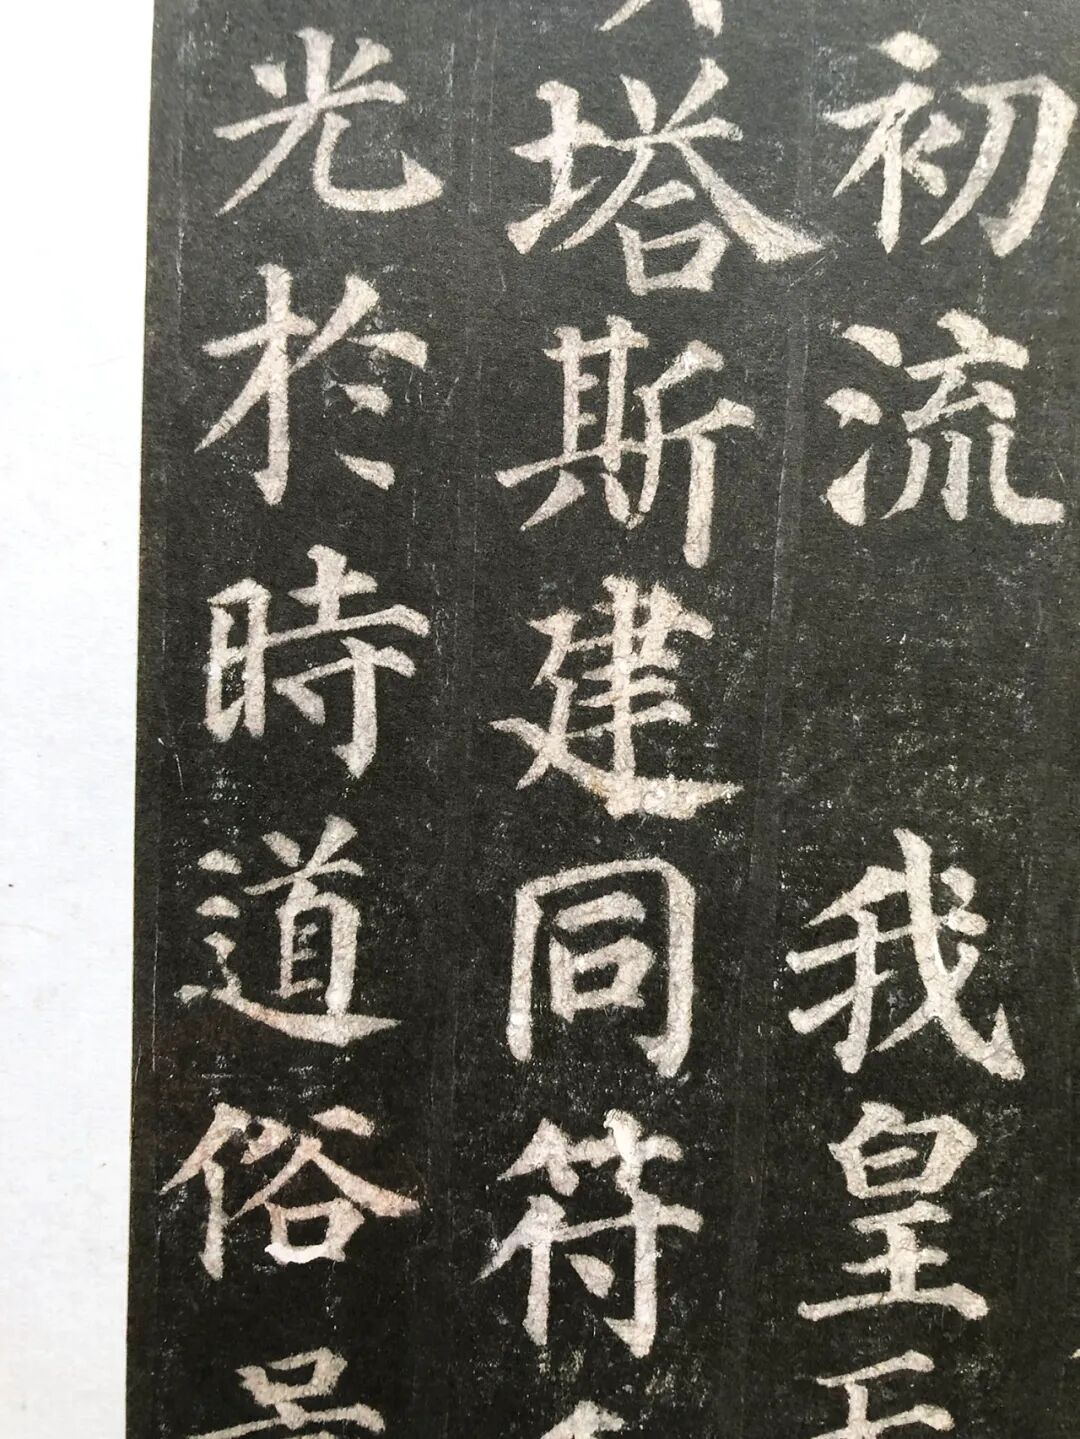 初流 我皇王
塔斯建同符
光於時道俗号